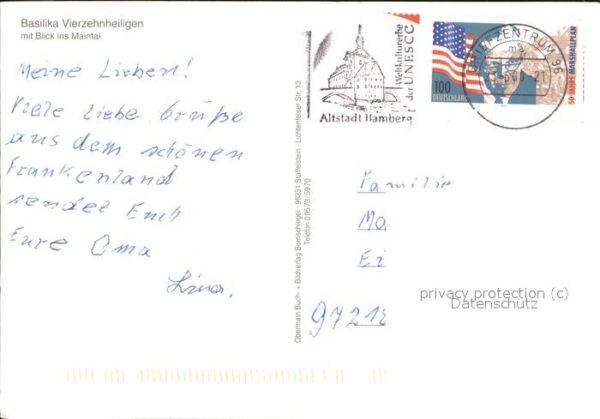 Basilika Vierzehnheiligen
mit Blick ins Maintal
Meine Lieben!
Viele liebe Grüße
aus dem schönen
Frankenland
sendet Euch
Eure Oma
Obermain Buch- + Bildverlag Bornschlegel · 96231 Staffelstein · Lichtenfelser Str. 13
Telefon 0 95 73-59 70
Weltkulturerbe
der UNESCO
Altstadt Bamberg
BRIEFZENTRUM 96
100
DEUTSCHLAND
50 JAHRE MARSHALLPLAN
Familie
Mo
Ei
privacy protection (c)
Datenschutz